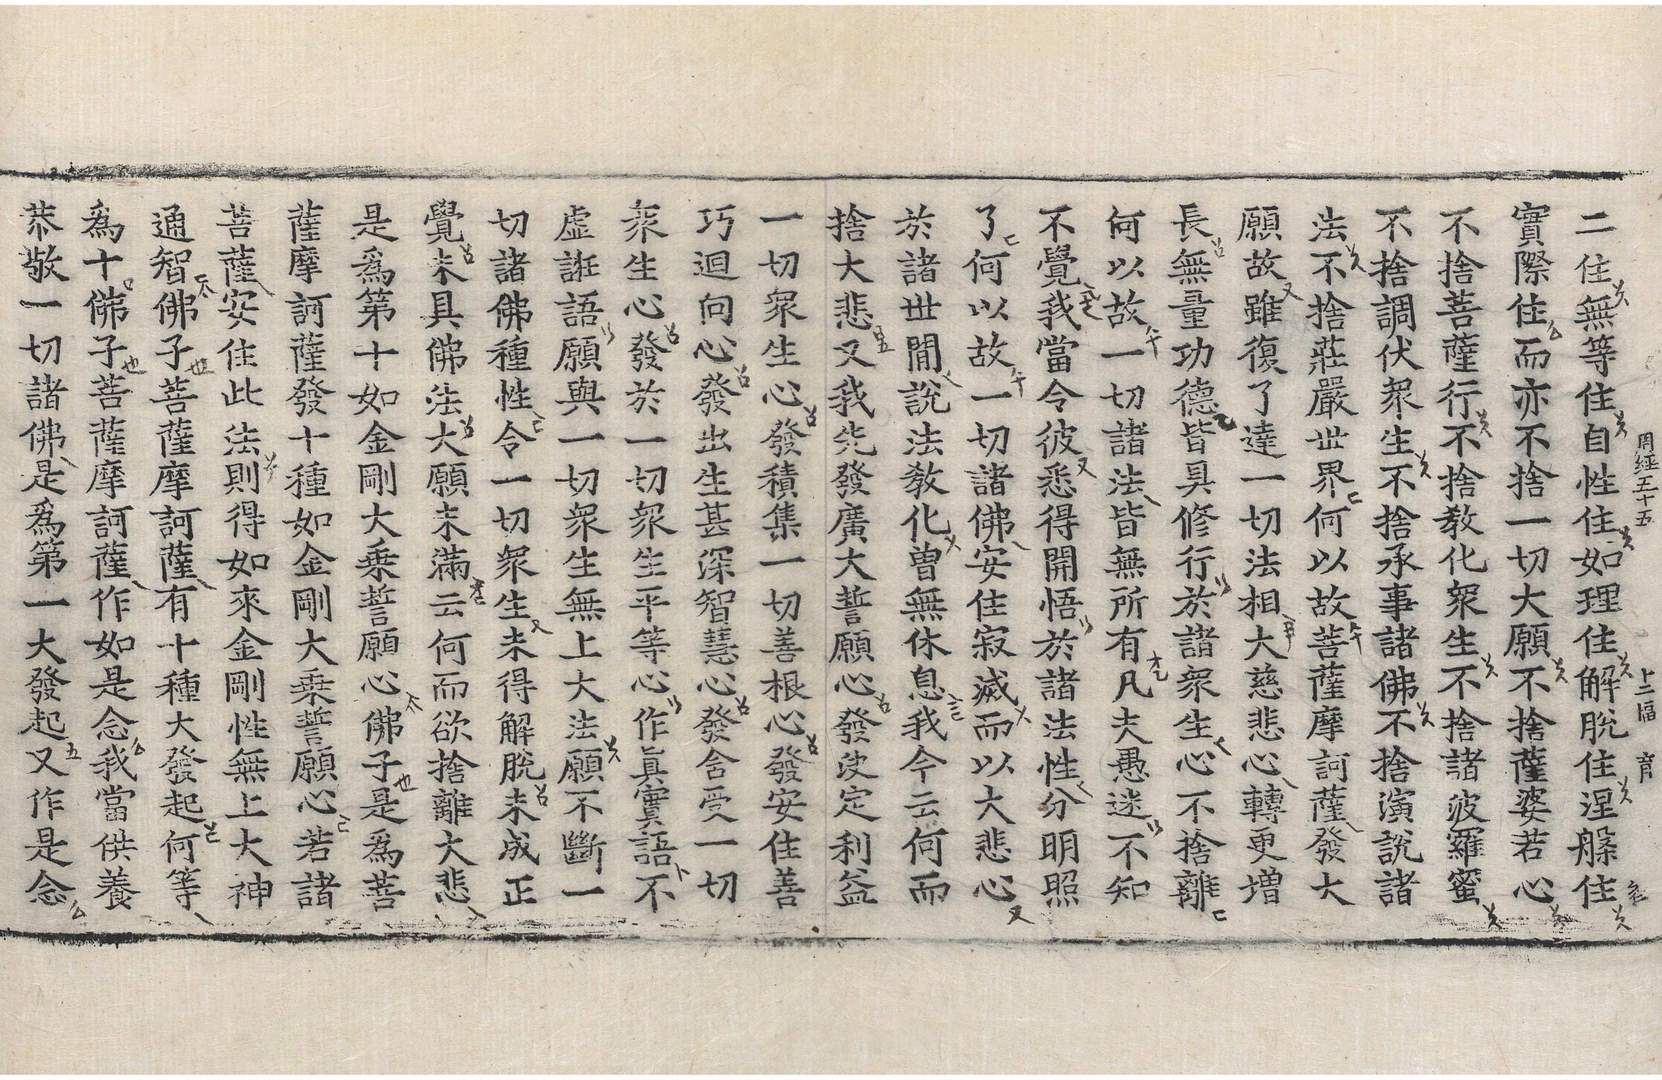 周經五十五
二住無等住自性住如理住解脫住涅槃住
實際住而亦不捨一切大願不捨薩婆若心
不捨菩薩行不捨教化衆生不捨諸波羅蜜
不捨調伏衆生不捨承事諸佛不捨演說諸
法不捨莊嚴世界何以故菩薩摩訶薩發大
願故雖復了達一切法相大慈悲心轉更增
長無量功德皆具修行於諸衆生心不捨離
何以故一切諸法皆無所有凡夫愚迷不知
不覺我當令彼悉得開悟於諸法性分明照
了何以故一切諸佛安住寂滅而以大悲心
於諸世閒說法教化曾無休息我今云何而
捨大悲又我先發廣大誓願心發決定利益
一切衆生心發積集一切善根心發安住善
巧迴向心發出生甚深智慧心發含受一切
衆生心發於一切衆生平等心作眞實語不
虛誑語願與一切衆生無上大法願不斷一
切諸佛種性令一切衆生未得解脫未成正
覺未具佛法大願未滿云何而欲捨離大悲
是爲第十如金剛大乘誓願心佛子是爲菩
薩摩訶薩發十種如金剛大乘誓願心若諸
菩薩安住此法則得如來金剛性無上大神
通智佛子菩薩摩訶薩有十種大發起何等
爲十佛子菩薩摩訶薩作如是念我當供養
恭敬一切諸佛是爲第一大發起又作是念